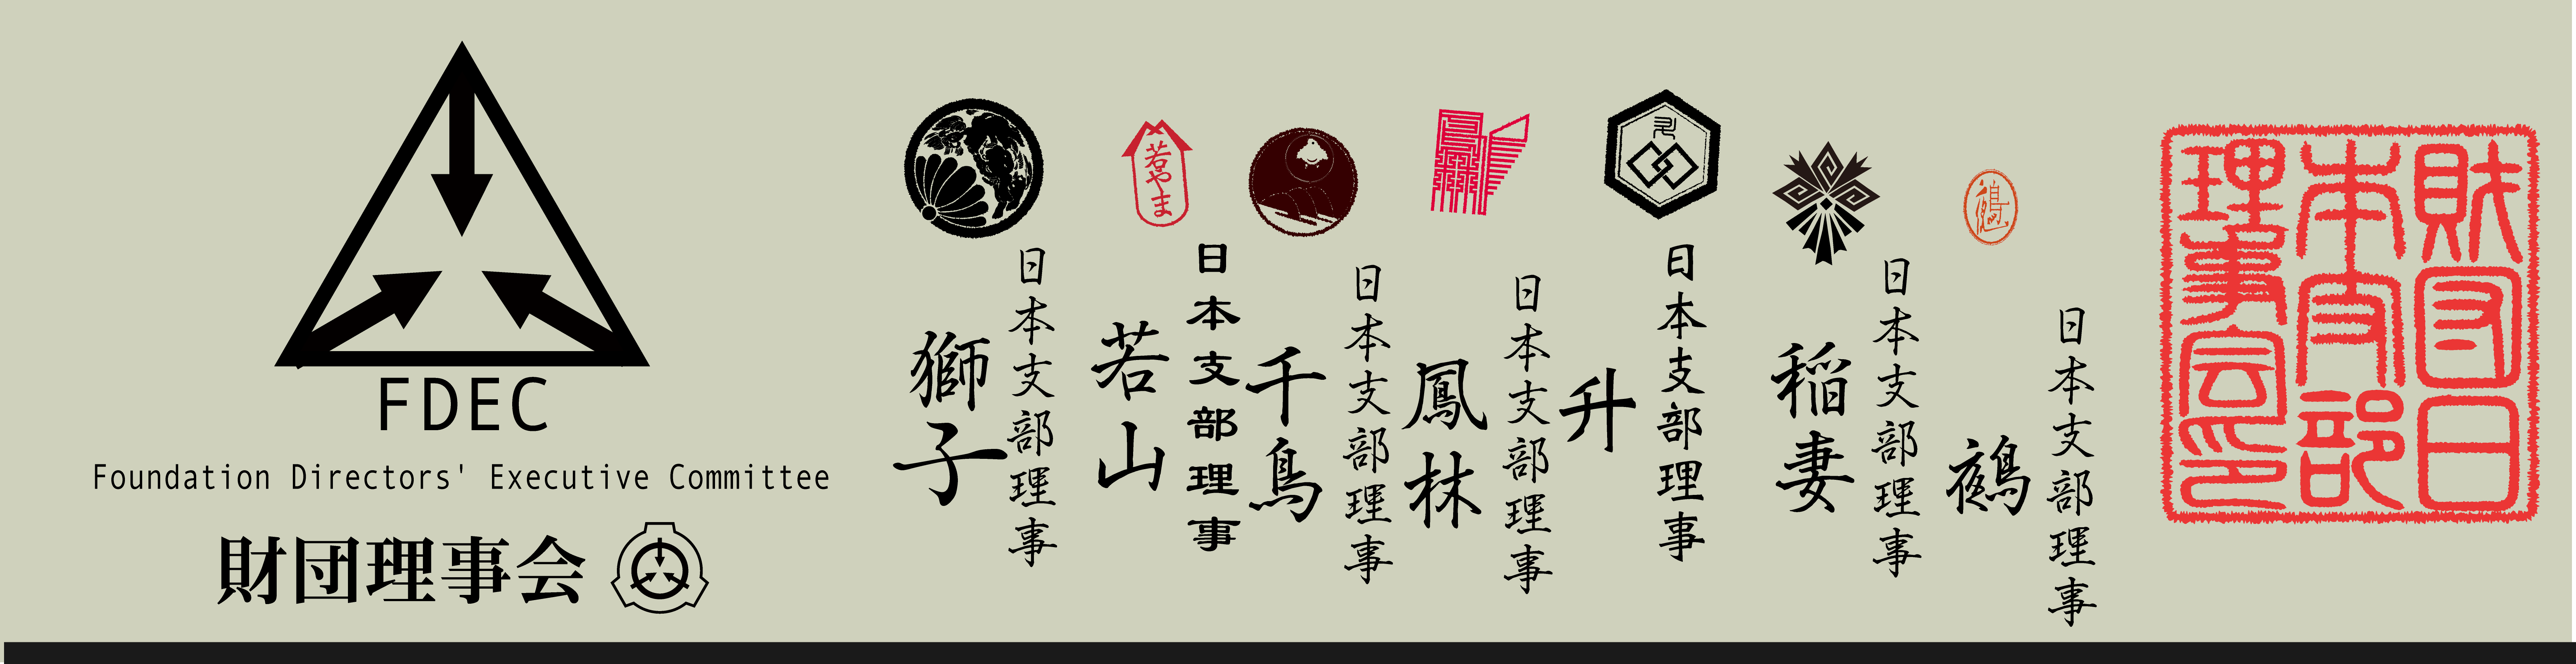 FDEC
Foundation Directors' Executive Committee
財団理事会
財団日
本支部
理事会印
日本支部理事
鵺
日本支部理事
稲妻
日本支部理事
升
日本支部理事
鳳林
日本支部理事
千鳥
若やま
日本支部理事
若山
日本支部理事
獅子